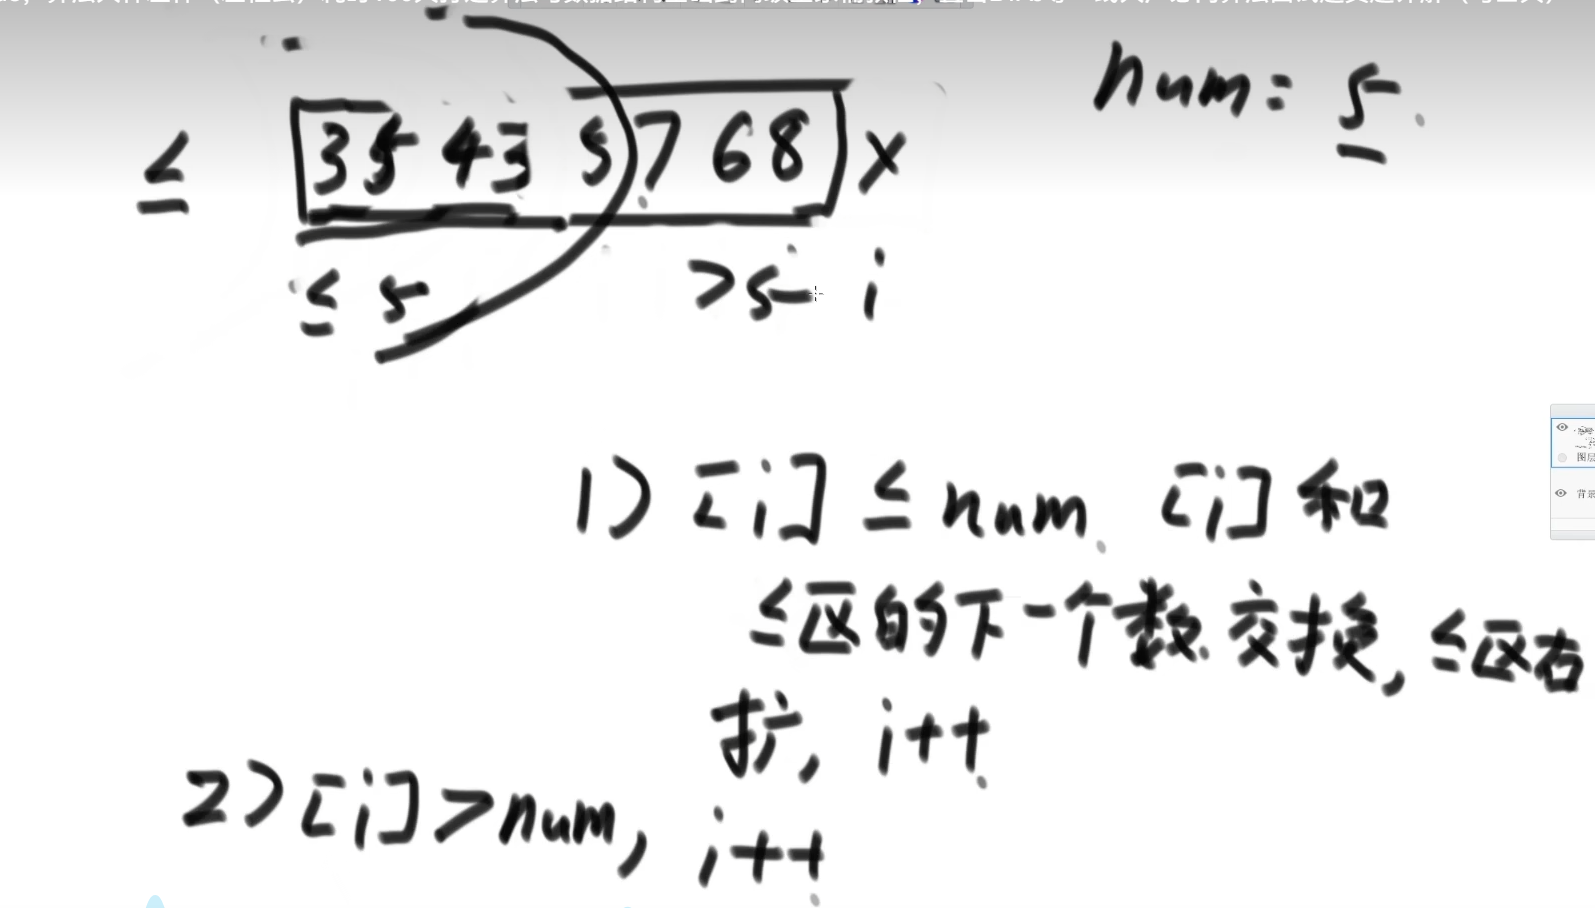 num = 5
≤ 3 5 4 3 5 7 6 8 x
≤ 5 > 5 i
1) [i] ≤ num [i] 和
≤区的下一个数交换, ≤区右
扩, i++
2) [i] > num, i++